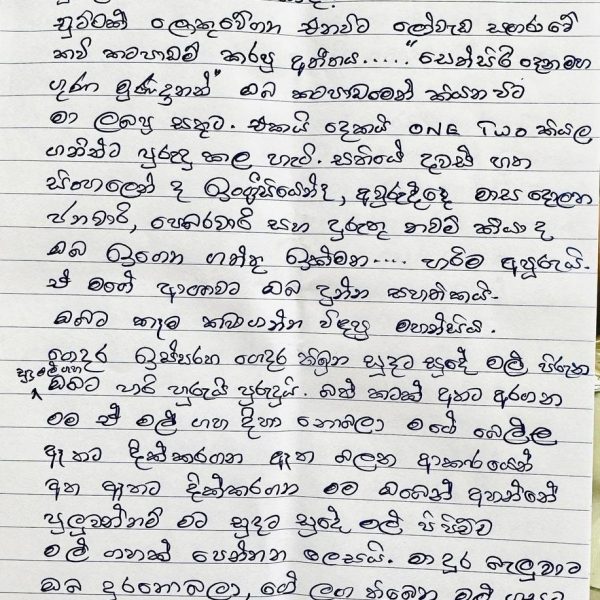 චූට්ටක් ලොකුවේගන එනවිට ලෝවැඩ සඟරාවේ
කවි කටපාඩම් කරපු අතීතය..... "සෙත්සිරි දෙනමහ
ගුණ මුණිඳුනන්" ඔබ කටපාඩමෙන් කියන විට
මා ලැබූ සතුට. එකයි දෙකයි ONE Two කියල
ගනින්ට පුරුදු කල හැටි. සතියේ දවස් හත
සිංහලෙන් ද ඉංග්‍රීසියෙන්ද, අවුරුද්දෙ මාස දොලහ
ජනවාරි, පෙබරවාරි සහ දුරුතු නවම් කියා ද
ඔබ ඉගෙන ගත්තු ඉක්මන.... හරිම අපූරුයි.
ඒ මගේ ආශාවට ඔබ දුන්න සහතිකයි.
ඔබට කෑම කවාගන්න විඳපු මහන්සිය.
ගෙදර ඉස්සරහ ගෙදර තිබුන සුදට සුදේ මල් පිරුන
ඔබට හරි හුරුයි පුරුදුයි. බත් කටක් අතට අරගන
මම ඒ මල් ගහ දිහා නොබලා මගේ බෙල්ල
ඈතට දික්කරගන ඈත බලන ආකාරයෙන්
අත ඈතට දික්කරගන මම ඔබෙන් අහන්නේ
පුලුවන්නම් මට සුදට සුදේ මල් පිපිච්ච
මල් ගහක් පෙන්නන ලෙසයි. මා දුර බැලුවාට
ඔබ දුරනොබලා, මේ ලඟ තිබෙන මල් ගහට